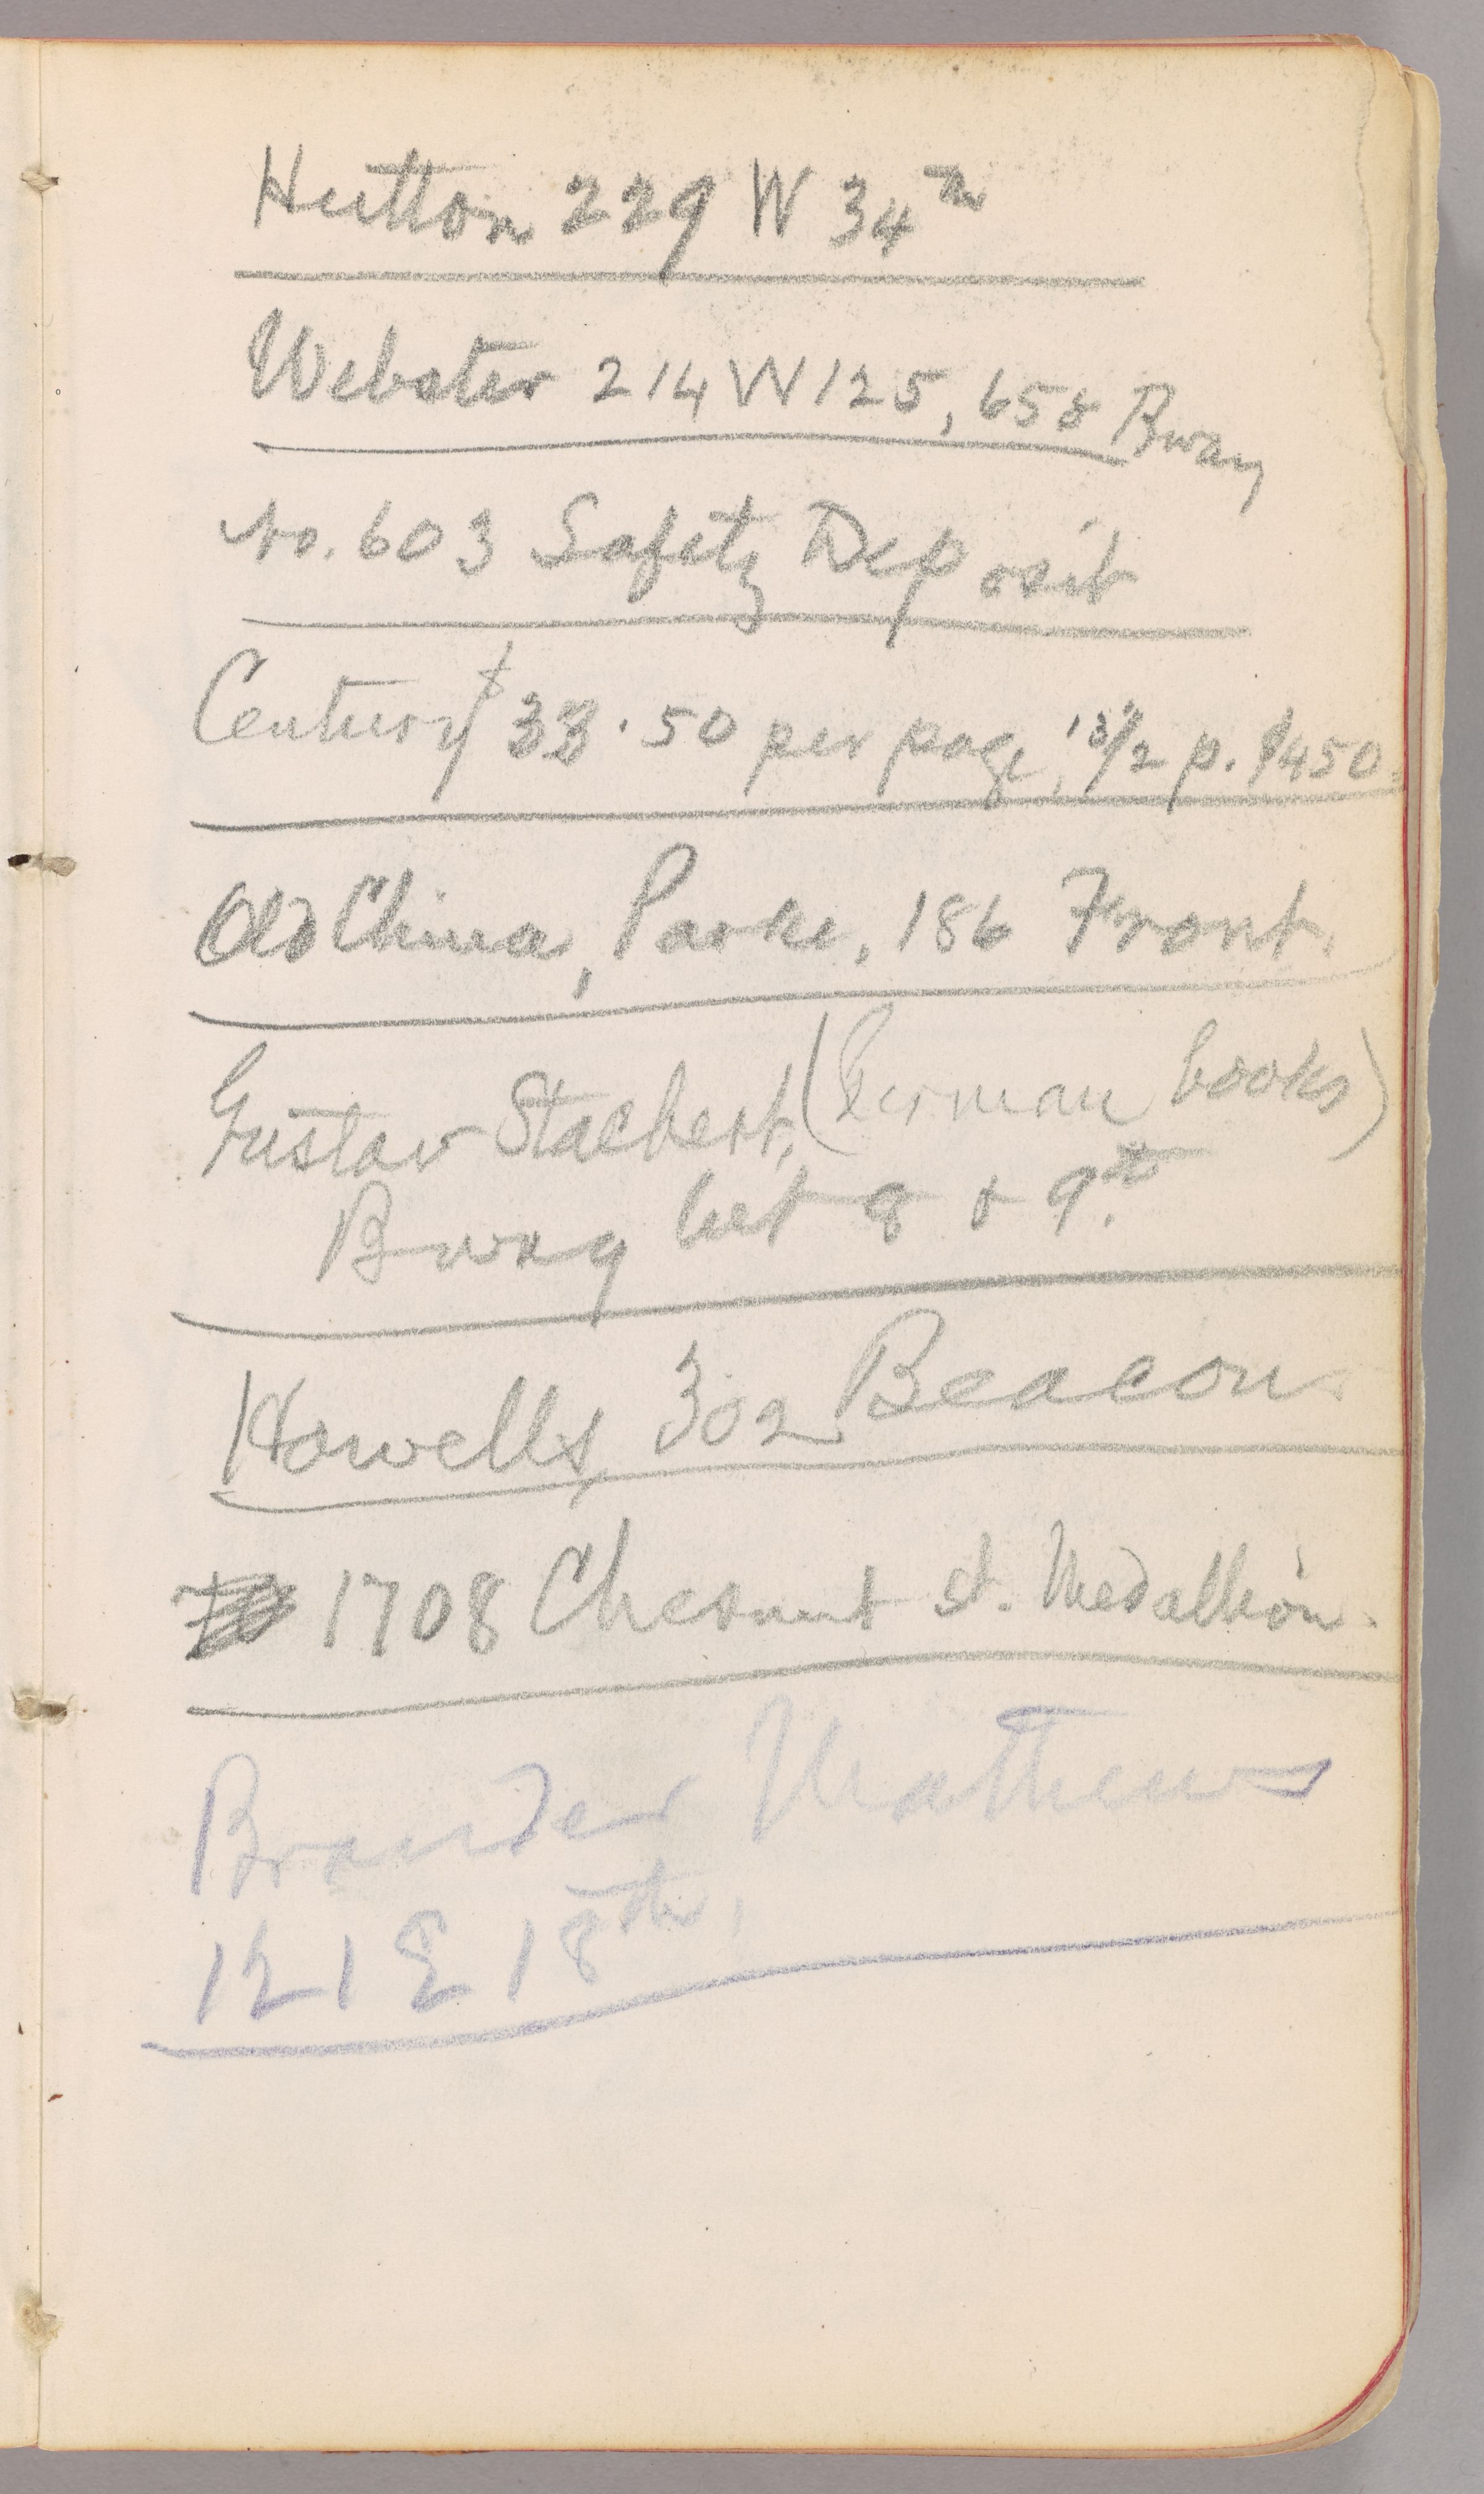 Hutton 229 W 34th
Webster 214 W 125, 658 Bway
No. 603 Safety Deposit
Century $33.50 per page, 13½ p. $450.
Old China, Parke, 186 Front.
Gustav Stechert, (German books)
Bway bet 8 & 9th.
Howells, 302 Beacon.
1708 Chesnut st. Medallion.
Brander Mathews
121 E 18th,